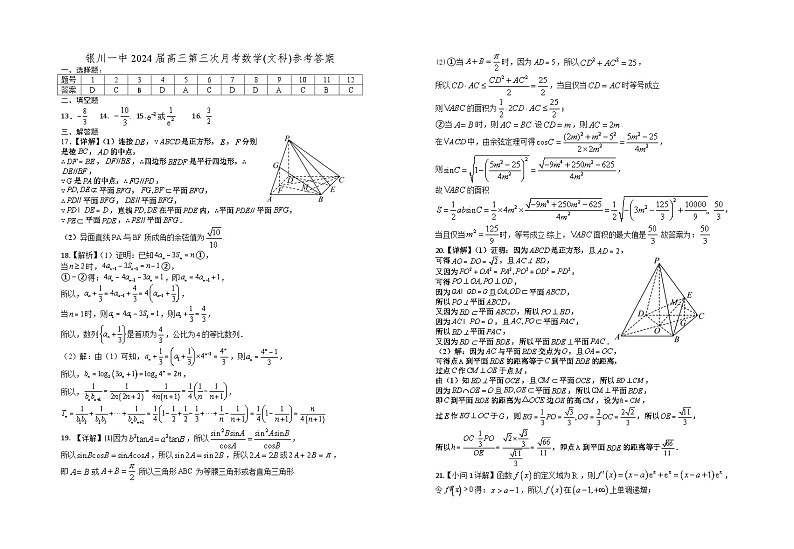 银川一中 2024 届高三第三次月考数学(文科)参考答案
一、选择题:
题号 1 2 3 4 5 6 7 8 9 10 11 12
答案 D C B D A C D D A C B C
二、填空题
13. -8/3 14. -10/3 15. e^-2 或 1/e^2 16. 3/2
三、解答题
17.【详解】(1)连接 DE,∵ABCD 是正方形,E,F 分别
是棱 BC,AD 的中点,
∴DF=BE,DF∥BE,∴四边形 BEDF 是平行四边形,∴
DE∥BF,
∵G 是 PA 的中点,∴FG∥PD,
∵PD,DE⊄平面 BFG,FG,BF⊂平面 BFG,
∴PD∥平面 BFG,DE∥平面 BFG,
∵PD∩DE=D,直线 PD,DE 在平面 PDE 内,∴平面 PDE∥平面 BFG,
∵PE⊂平面 PDE,∴PE∥平面 BFG.
(2)异面直线 PA 与 BF 所成角的余弦值为 √10/10
18.【解析】(1)证明:已知 4a_n-3S_n=n①,
当 n≥2 时,4a_{n-1}-3S_{n-1}=n-1②,
①-②得:4a_n-4a_{n-1}-3a_n=1,即 a_n=4a_{n-1}+1,
所以,a_n+1/3=4a_{n-1}+4/3=4(a_{n-1}+1/3),
当 n=1 时,则 a_1=4a_1-3S_1=1,则 a_1+1/3=4/3,
所以,数列{a_n+1/3}是首项为 4/3,公比为 4 的等比数列.
(2)解:由(1)可知,a_n+1/3=(a_1+1/3)×4^{n-1}=4^n/3,则 a_n=(4^n-1)/3,
所以,b_n=log_2(3a_n+1)=log_2 4^n=2n,
所以,1/(b_n b_{n+1})=1/(2n(2n+2))=1/(4n(n+1))=1/4(1/n-1/(n+1)),
T_n=1/(b_1b_2)+1/(b_2b_3)+⋯+1/(b_nb_{n+1})=1/4(1-1/2+1/2-1/3+⋯+1/n-1/(n+1))=1/4(1-1/(n+1))=n/(4(n+1)).
19.【详解】(1)因为 b²tanA=a²tanB,所以 sin²BsinA/cosA=sin²AsinB/cosB,
所以 sinBcosB=sinAcosA,所以 sin2A=sin2B,所以 2A=2B 或 2A+2B=π,
即 A=B 或 A+B=π/2.所以三角形 ABC 为等腰三角形或者直角三角形.
(2)①当 A+B=π/2 时,因为 AD=5,所以 CD²+AC²=25,
所以 CD·AC≤(CD²+AC²)/2=25/2,当且仅当 CD=AC 时等号成立
则 VABC 的面积为 1/2·2CD·AC≤25/2;
②当 A=B 时,则 AC=BC 设 CD=m,则 AC=2m.
在 VADC 中,由余弦定理可得 cosC=((2m)²+m²-5²)/(2×2m²)=(5m²-25)/(4m²),
则 sinC=√(1-((5m²-25)/(4m²))²)=√(-9m⁴+250m²-625)/(4m²),
故 VABC 的面积
S=1/2 absinC=1/2×4m²×√(-9m⁴+250m²-625)/(4m²)=1/2√(-(3m²-125/3)²+10000/9)≤50/3,
当且仅当 m²=125/9 时,等号成立.综上,VABC 面积的最大值是 50/3.故答案为:50/3
20.【详解】(1)证明:因为 ABCD 是正方形,且 AD=2,
可得 AO=DO=√2,且 AC⊥BD,
又因为 PO²+OA²=PA²,PO²+OD²=PD²,
可得 PO⊥OA,PO⊥OD,
因为 OA∩OD=O 且 OA,OD⊂平面 ABCD,
所以 PO⊥平面 ABCD,
又因为 BD⊂平面 ABCD,所以 PO⊥BD,
因为 AC∩PO=O,且 AC,PO⊂平面 PAC,
所以 BD⊥平面 PAC,
又因为 BD⊂平面 BDE,所以平面 BDE⊥平面 PAC.
(2)解:因为 AC 与平面 BDE 交点为 O,且 OA=OC,
可得点 A 到平面 BDE 的距离等于 C 到平面 BDE 的距离,
过点 C 作 CM⊥OE 于点 M,
由(1)知 BD⊥平面 OCE,且 CM⊂平面 OCE,所以 BD⊥CM,
因为 BD∩OE=O 且 BD,OE⊂平面 BDE,所以 CM⊥平面 BDE,
即 C 到平面 BDE 的距离为△OCE 边 OE 的高 CM,设为 h=CM,
过 E 作 EG⊥OC 于 G,则 EG=1/3 PO=√3/3,OG=2/3 OC=2√2/3,所以 OE=√11/3,
所以 h=(OC·1/3 PO)/OE=(√2×√3/3)/(√11/3)=√66/11,即点 A 到平面 BDE 的距离等于 √66/11.
21.【小问 1 详解】函数 f(x) 的定义域为 R,则 f′(x)=(x-a)e^x+e^x=(x-a+1)e^x,
令 f′(x)>0 得:x>a-1,所以 f(x) 在 (a-1,+∞) 上单调递增;